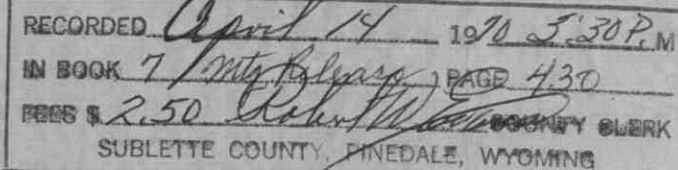 RECORDED April 14 1970 3:30 P.M
IN BOOK 7 Mtg Release PAGE 430
FEES $ 2.50 Robert W COUNTY CLERK
SUBLETTE COUNTY, PINEDALE, WYOMING